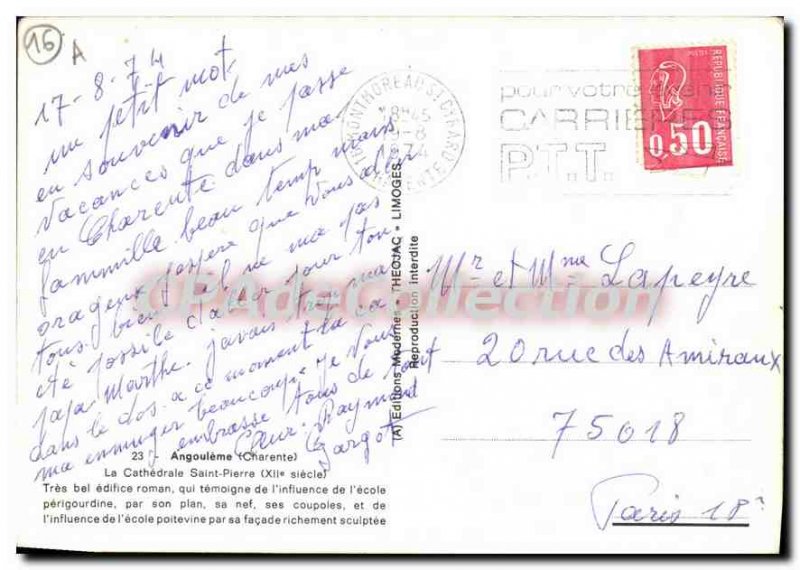 16
A
17-8-74
un petit mot
en souvenir de mes
vacances que je passe
en Charente dans ma
fammille beau temp mais
orageux j'espère que vous aler
tous bien je ne ma pas
été possile d'aler pour ton
papa Marthe. javais trop mal
dans le dos a ce moment la ca
ma ennuyer beaucoup. Je vous
embrasse tous de tout
Cœur. Raymond
Gargot
23 - Angoulême (Charente)
La Cathédrale Saint-Pierre (XIIe siècle)
Très bel édifice roman, qui témoigne de l'influence de l'école
périgourdine, par son plan, sa nef, ses coupoles, et de
l'influence de l'école poitevine par sa façade richement sculptée
(A) Editions Modernes - THEOJAC - LIMOGES
Reproduction interdite
16 MONTMOREAU ST CYBARD
18H45
19-8
1974
CHARENTE
pour votre avenir
CARRIERES
P.T.T.
REPUBLIQUE FRANÇAISE
POSTES
0,50
CPAdeCollection
Mr et Mme Lapeyre
20 rue des Amiraux
75018
Paris 18e